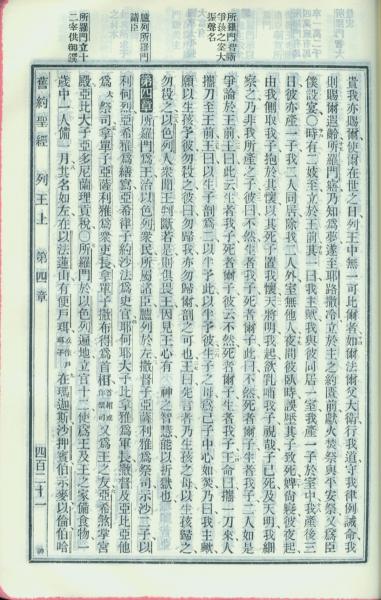 所羅門晋斷
爭孩之案大
振聲名
臚列所羅門
諸臣
所羅門立十
二宰供御饌
貴我亦賜爾使爾在世之日列王中無一可比者如爾法爾父大衛行我道守我律例誡命我
則賜爾遐齡所羅門寤乃知為夢遂至耶路撒冷立於主之約匱前獻火焚祭與平安祭又為臣
僕設宴〇時有二妓至立於王前其一曰我主歟我與彼同居一室我產一子於室中我產後三
日彼亦產一子我二人同居除我二人外室無他人夜間彼臥時誤壓其子致死婢尚寢彼夜起
由我側取我子抱於其懷以其死子置我懷天將明我起欲乳哺我子視哉子已死及天明我細
察之乃非我所產之子彼曰不然生者我子死者爾子此曰不然死者爾子生者我子二人如是
爭論於王前王曰此云生者我子死者爾子彼云不然死者爾子生者我子王命曰攜一刀來人
攜刀至王前王曰以生子剖為二以半予此以半予彼生子之母為己子中心如焚乃曰我主歟
願以生孩予彼勿殺之彼曰勿歸我亦勿歸爾剖之可也王曰先言者乃生孩之母以生孩歸之
勿殺之以色列人眾聞王判斷若是即俱畏王因見王心有 神之智慧能以折獄也
第四章所羅門為王治以色列眾民所屬諸臣臚列於左撒督子亞薩利雅為祭司示沙二子以
利何烈亞希雅為繕寫亞希律子約沙法為史官耶何耶大子比拿雅為軍長撒督及亞比亞他
為大祭司拿單子亞薩利雅為眾吏長拿單子撒布得為首相又為王之友亞希煞掌宮
殿亞比大子亞多尼蘭理貢稅〇所羅門於以色列遍地立官十二使為王及王之家備食物一
歲中一人備一月其名如左在以法蓮山有便戶珥在瑪迦斯沙押賓伯示麥以倫伯哈
舊約聖經 列王上 第四章 四百二十一